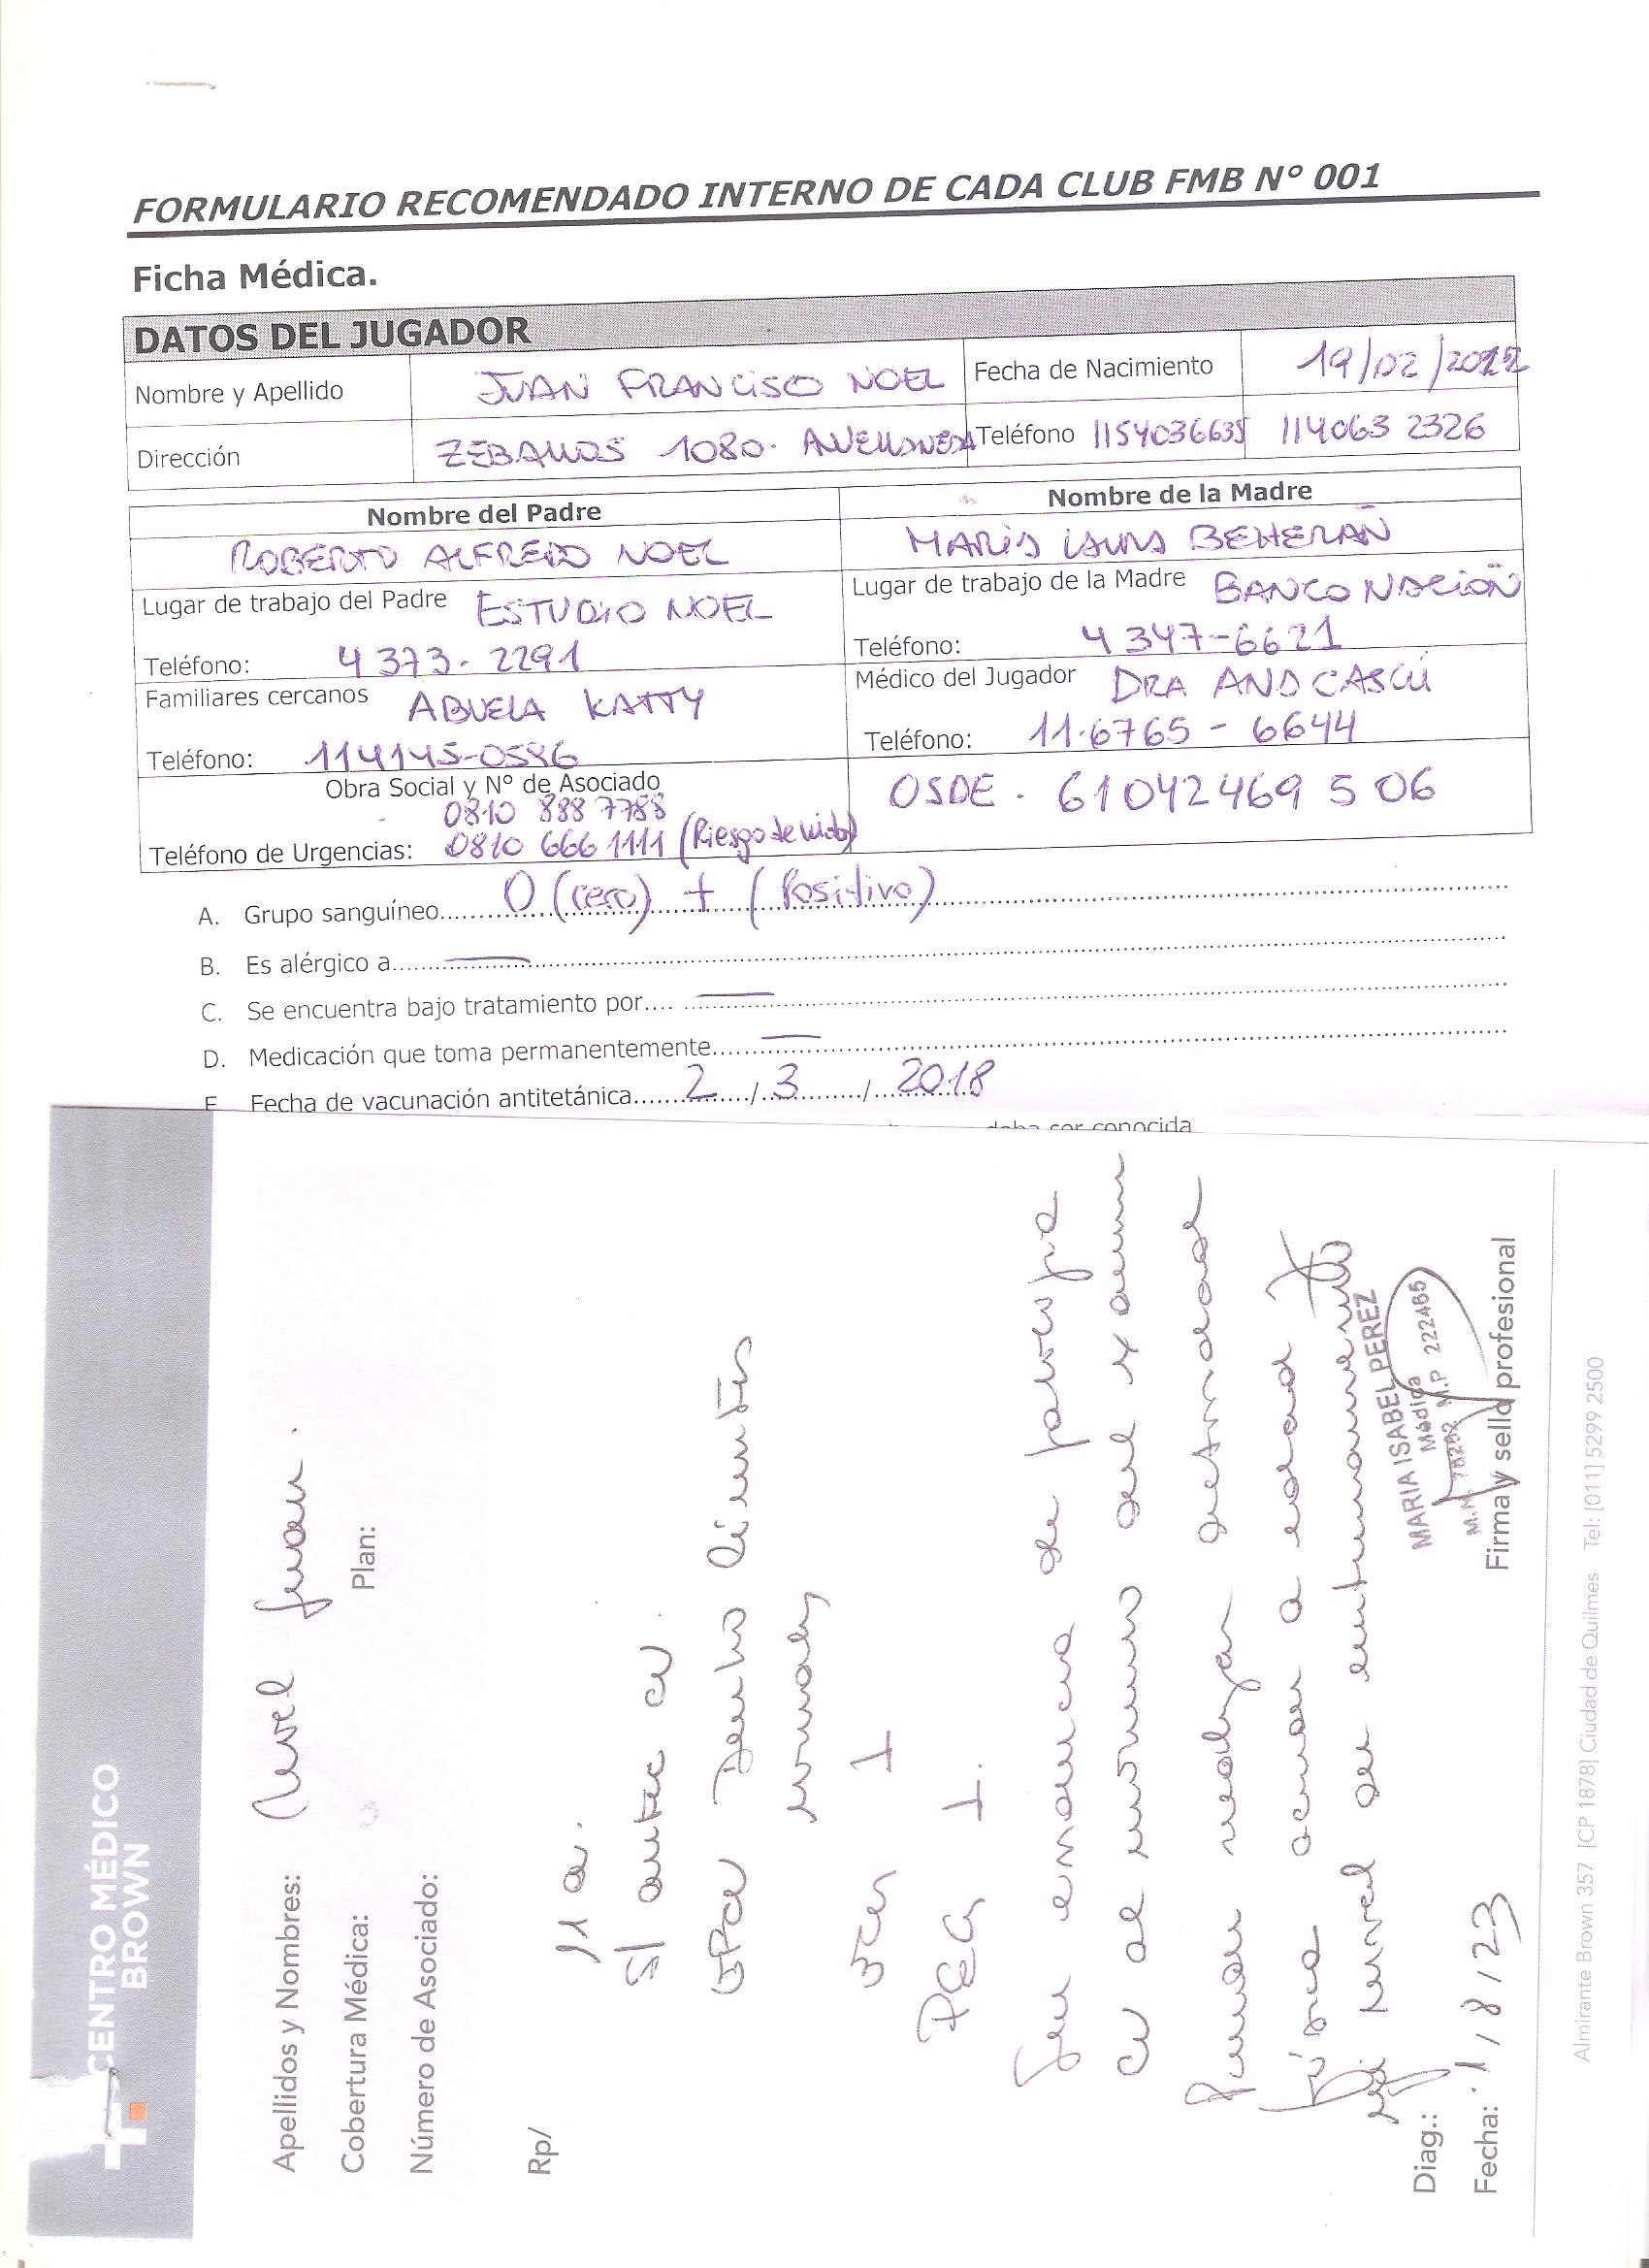 FORMULARIO RECOMENDADO INTERNO DE CADA CLUB FMB N° 001
Ficha Médica.
DATOS DEL JUGADOR
Nombre y Apellido JUAN FRANCISCO NOEL Fecha de Nacimiento 19/02/2012
Dirección ZEBALLOS 1080. AVELLANEDA Teléfono 1154036635 114063 2326
Nombre del Padre Nombre de la Madre
ROBERTO ALFREDO NOEL MARIA LAURA BEHERAN
Lugar de trabajo del Padre ESTUDIO NOEL Lugar de trabajo de la Madre BANCO NACION
Teléfono: 4373-2291 Teléfono: 4347-6621
Familiares cercanos ABUELA KATTY Médico del Jugador DRA ANA CASCÚ
Teléfono: 114145-0586 Teléfono: 11-6765-6644
Obra Social y N° de Asociado OSDE. 61042469506
0810 888 7788
Teléfono de Urgencias: 0810 666 1111 (Riesgo de vida)
A. Grupo sanguíneo 0 (cero) + (Positivo)
B. Es alérgico a —
C. Se encuentra bajo tratamiento por —
D. Medicación que toma permanentemente —
E Fecha de vacunación antitetánica 2 / 3 / 2018
deba ser conocida
CENTRO MÉDICO
BROWN
Apellidos y Nombres: Noel Juan.
Cobertura Médica: Plan:
Número de Asociado:
Rp/
11 a.
S/ antec cv.
Dentro límites
normales
ECG
de
cv al momento del examen
realizar determinada
física acorde a edad y
nivel de entrenamiento
MARIA ISABEL PEREZ
Médica
M.N. 78252 M.P 222465
Diag.: Firma y sello profesional
Fecha: 1/8/23
Almirante Brown 357 [CP 1878] Ciudad de Quilmes Tel: [011] 5299 2500